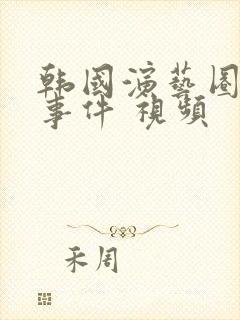 韩國演藝圈
事件 視頻
禾周